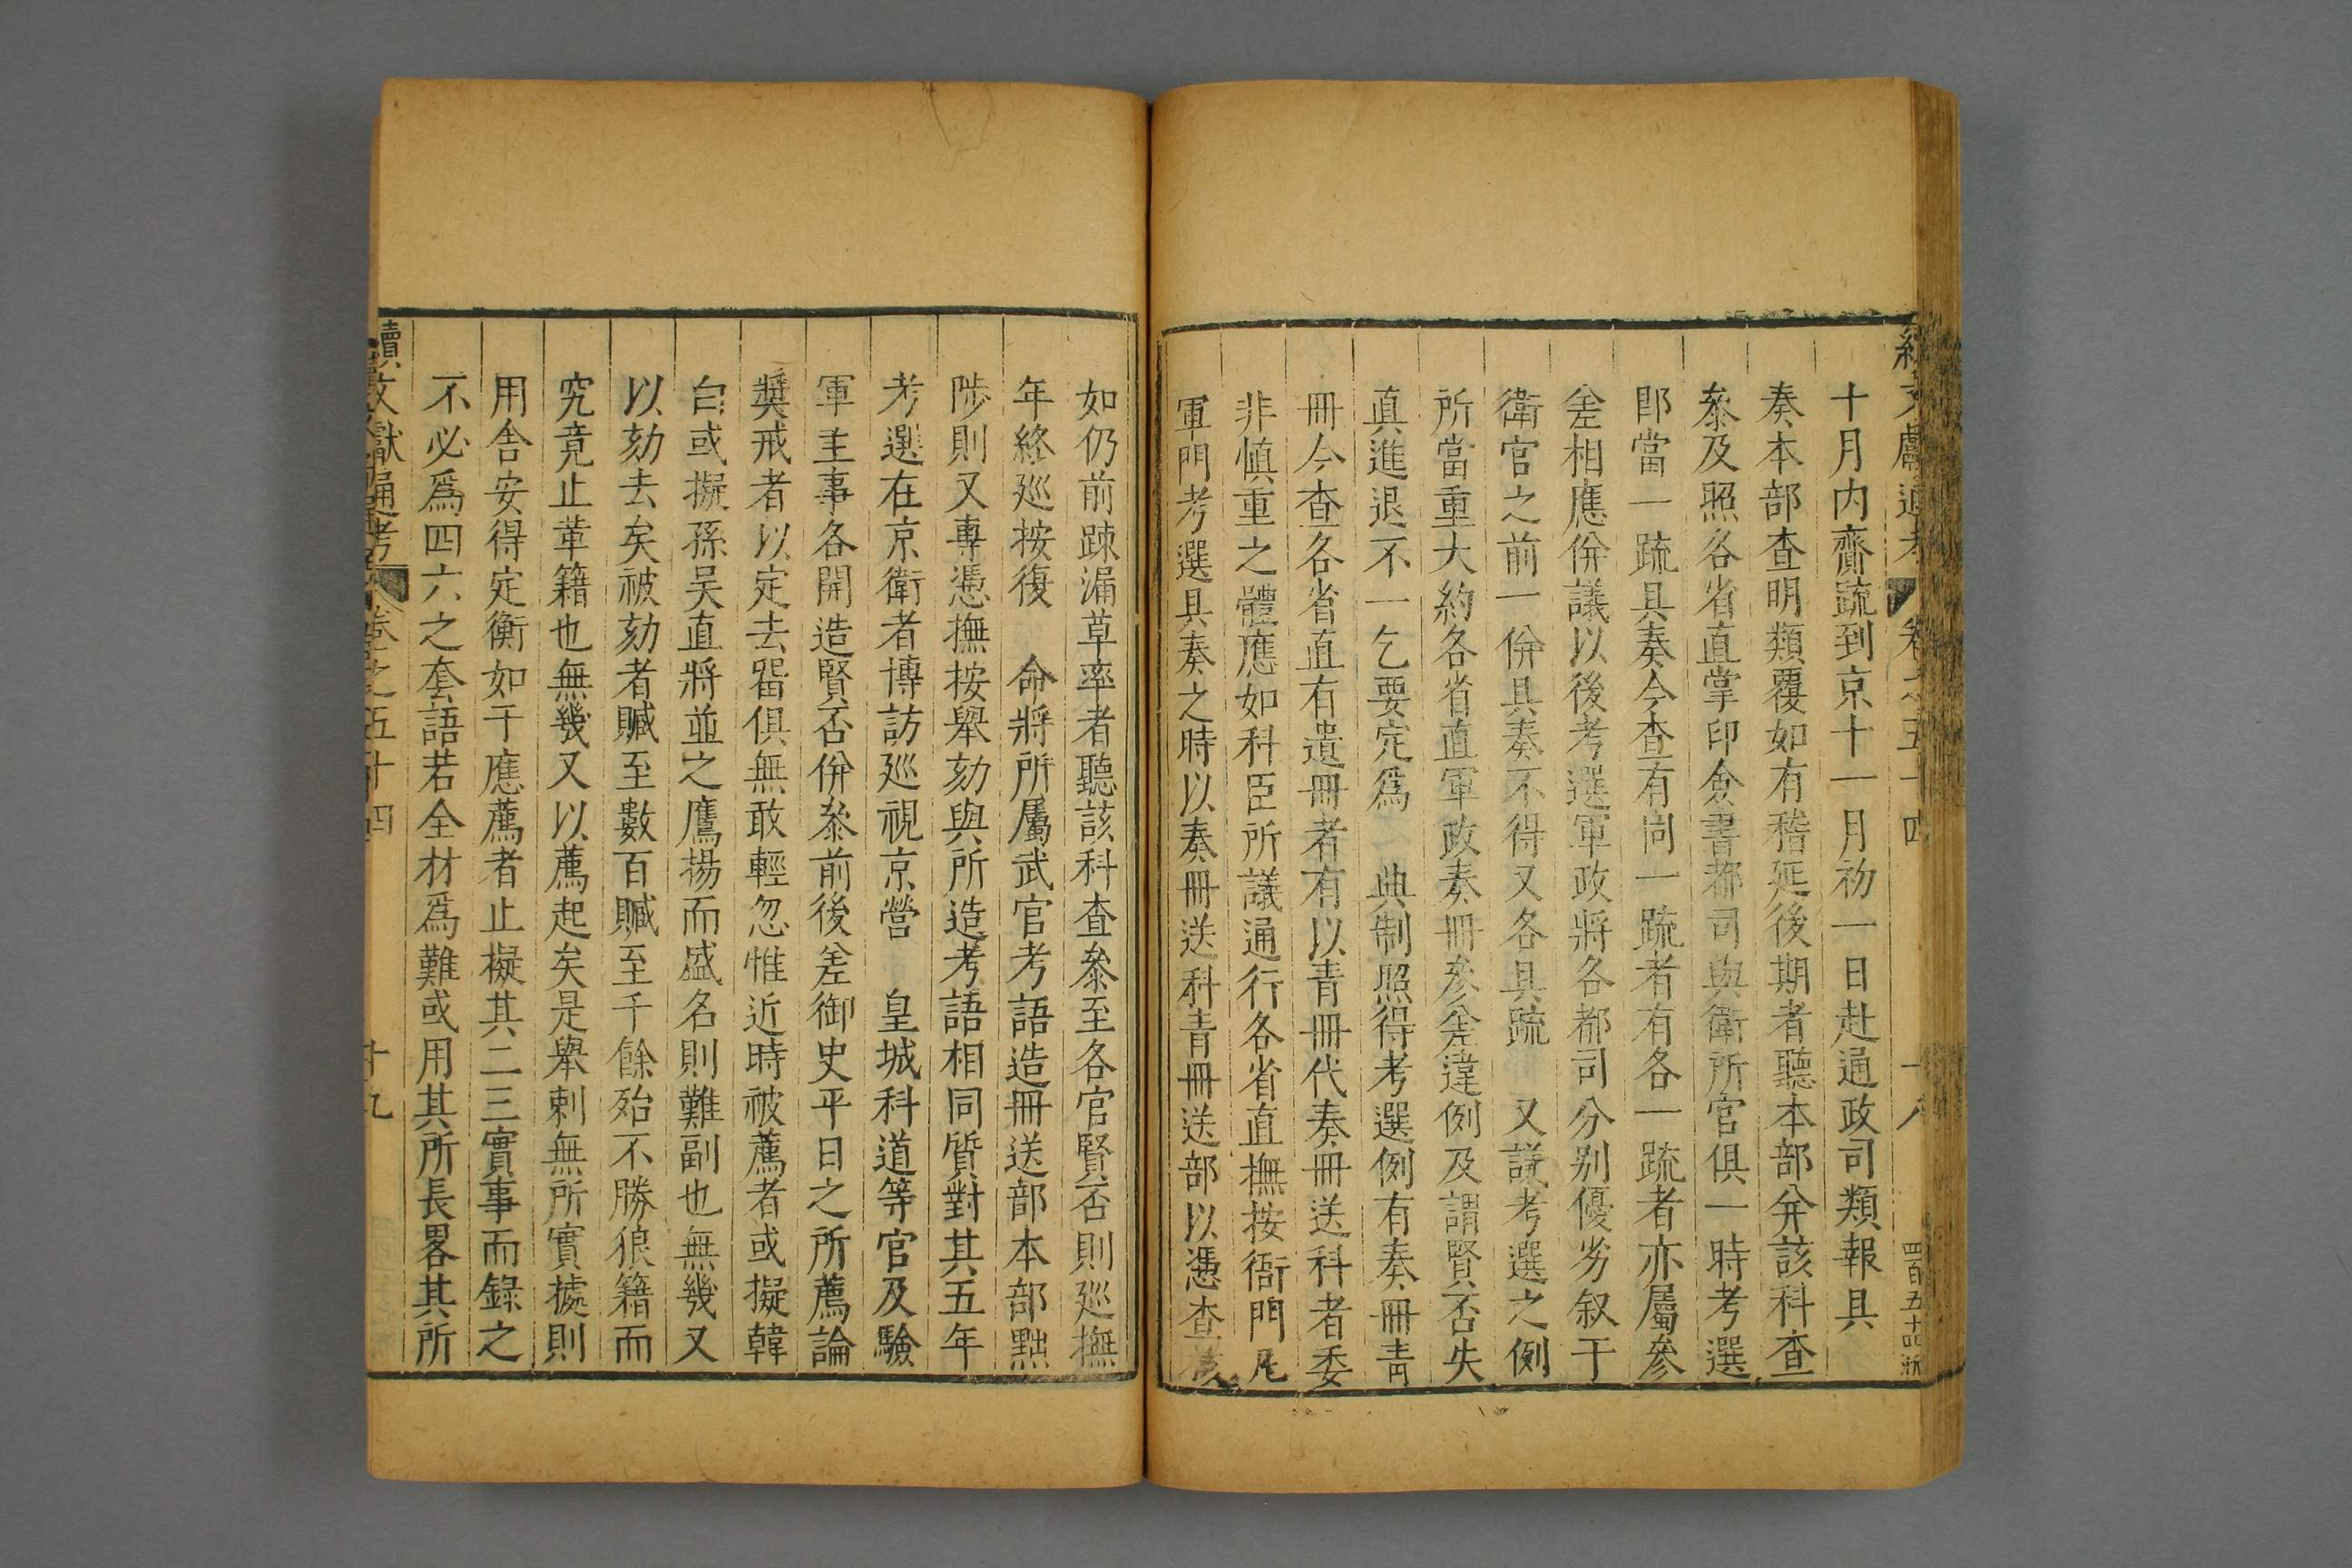 續文獻通考 卷之五十四 十八 四百五十四 浙
十月内齎疏到京十一月初一日赴通政司類報具
奏本部查明類覆如有稽延後期者聽本部并該科查
叅及照各省直掌印僉書都司與衛所官俱一時考選
即當一疏具奏今查有同一疏者有各一疏者亦屬參
差相應併議以後考選軍政將各都司分别優劣叙于
衛官之前一併具奏不得又各具疏 又議考選之例
所當重大約各省直軍政奏冊參差違例及謂賢否失
真進退不一乞要定爲 典制照得考選例有奏冊靑
冊今查各省直有遺冊者有以青冊代奏冊送科者委
非慎重之體應如科臣所議通行各省直撫按衙門凡
軍門考選具奏之時以奏冊送科青冊送部以憑查覈
如仍前踈漏草率者聽該科查叅至各官賢否則廵撫
年終廵按復 命將所屬武官考語造冊送部本部黜
陟則又專憑撫按舉劾與所造考語相同質對其五年
考選在京衛者博訪廵視京營 皇城科道等官及驗
軍主事各開造賢否併叅前後差御史平日之所薦論
奬戒者以定去畱俱無敢輕忽惟近時被薦者或擬韓
白或擬孫吴直將並之鷹揚而盛名則難副也無幾又
以劾去矣被劾者贓至數百贓至千餘殆不勝狼籍而
究竟止革籍也無幾又以薦起矣是舉刺無所實據則
用舍安得定衡如干應薦者止擬其二三實事而錄之
不必爲四六之套語若全材爲難或用其所長畧其所
續文獻通考 卷之五十四 十九